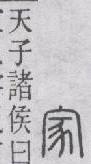 天子諸侯曰
家